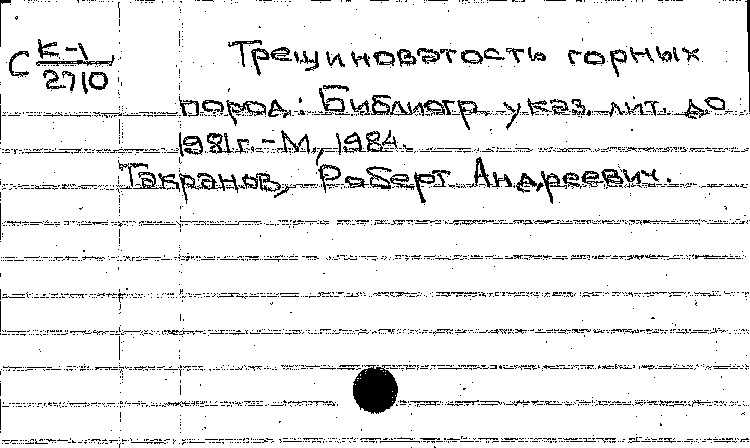 С К-1/2710
Трещиноватость горных
пород: Библиогр. указ. лит. до
1981г. - М., 1984.
Такранов, Роберт Андреевич.